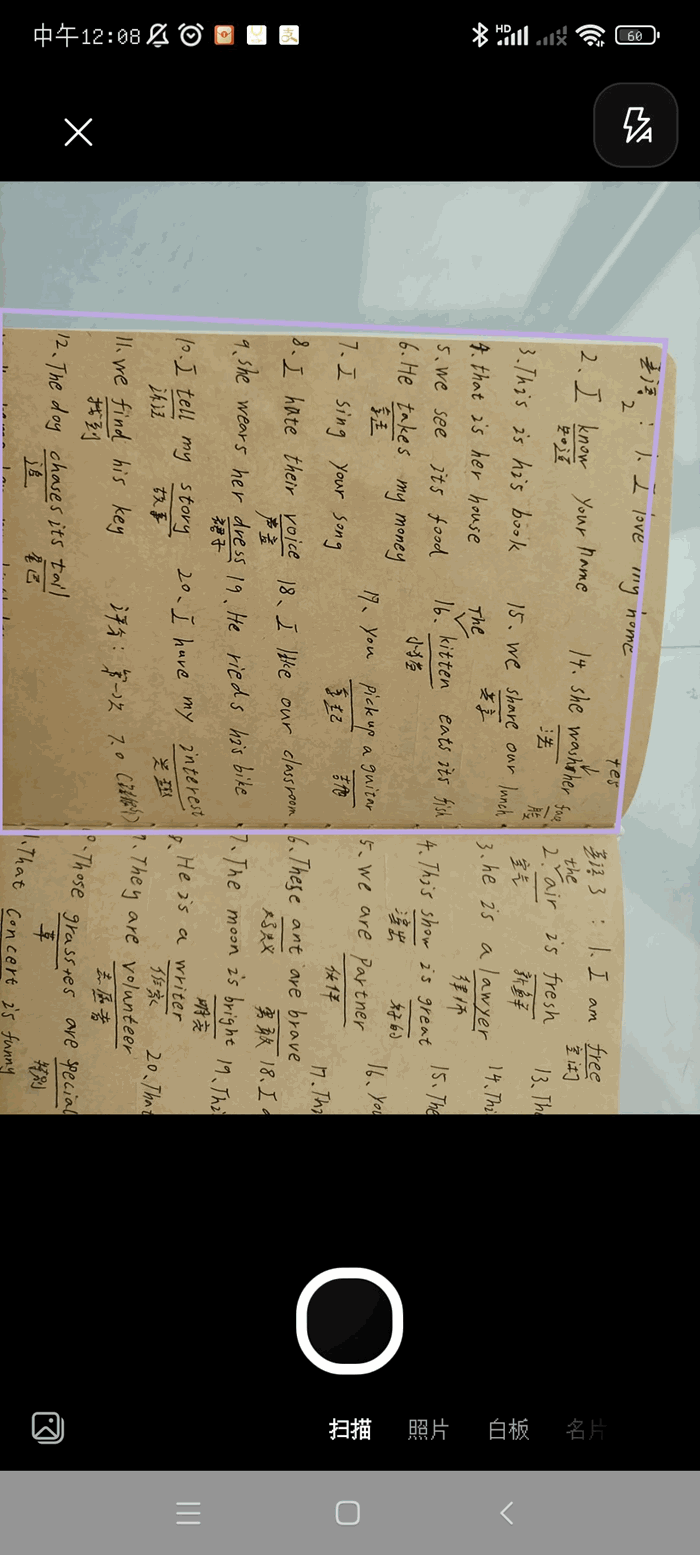 中午12:08
HD
60
英语2: 1、I love my home
2、I know your name
知道
3、This is his book
4、that is her house
5、we see its food
6、He takes my money
拿走
7、I sing your song
8、I hate their voice
声音
9、she wears her dress
裙子
10、I tell my story
讲过
故事
11、we find his key
找到
12、The dog chases its tail
追
尾巴
tes
14、she wash her face
洗
脸
15、we share our lunch
共享
The
16、kitten eats its fish
小猫
17、You pickup a guitar
拿起
吉他
18、I like our classroom
19、He rieds his bike
20、I have my interest
兴趣
评分: 第一次 7.0
英语3: 1、I am free
空闲
the
2、air is fresh
空气
新鲜
3、he is a lawyer
律师
4、This show is great
演出
好的
5、we are partner
伙伴
6、These ant are brave
蚂蚁
勇敢
7、The moon is bright
明亮
8、He is a writer
作家
9、They are volunteer
志愿者
10、Those grasses are special
草
特别
11、That concert is funny
13、Th
14、Thi
15、The
16、You
17、Thi
18、I
19、Thi
20、That
扫描
照片
白板
名片